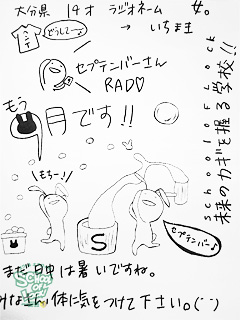 大分県 14才 ラジオネーム
いちま
どうして〜
セプテンバーさん
RADO♡
もう
月です!!
school of Lock
未来のカギを握る学校!!
もちー!
S
セプテンバー♪
まだ日中は暑いですね。
みなさん、体に気をつけて下さい。(¨)